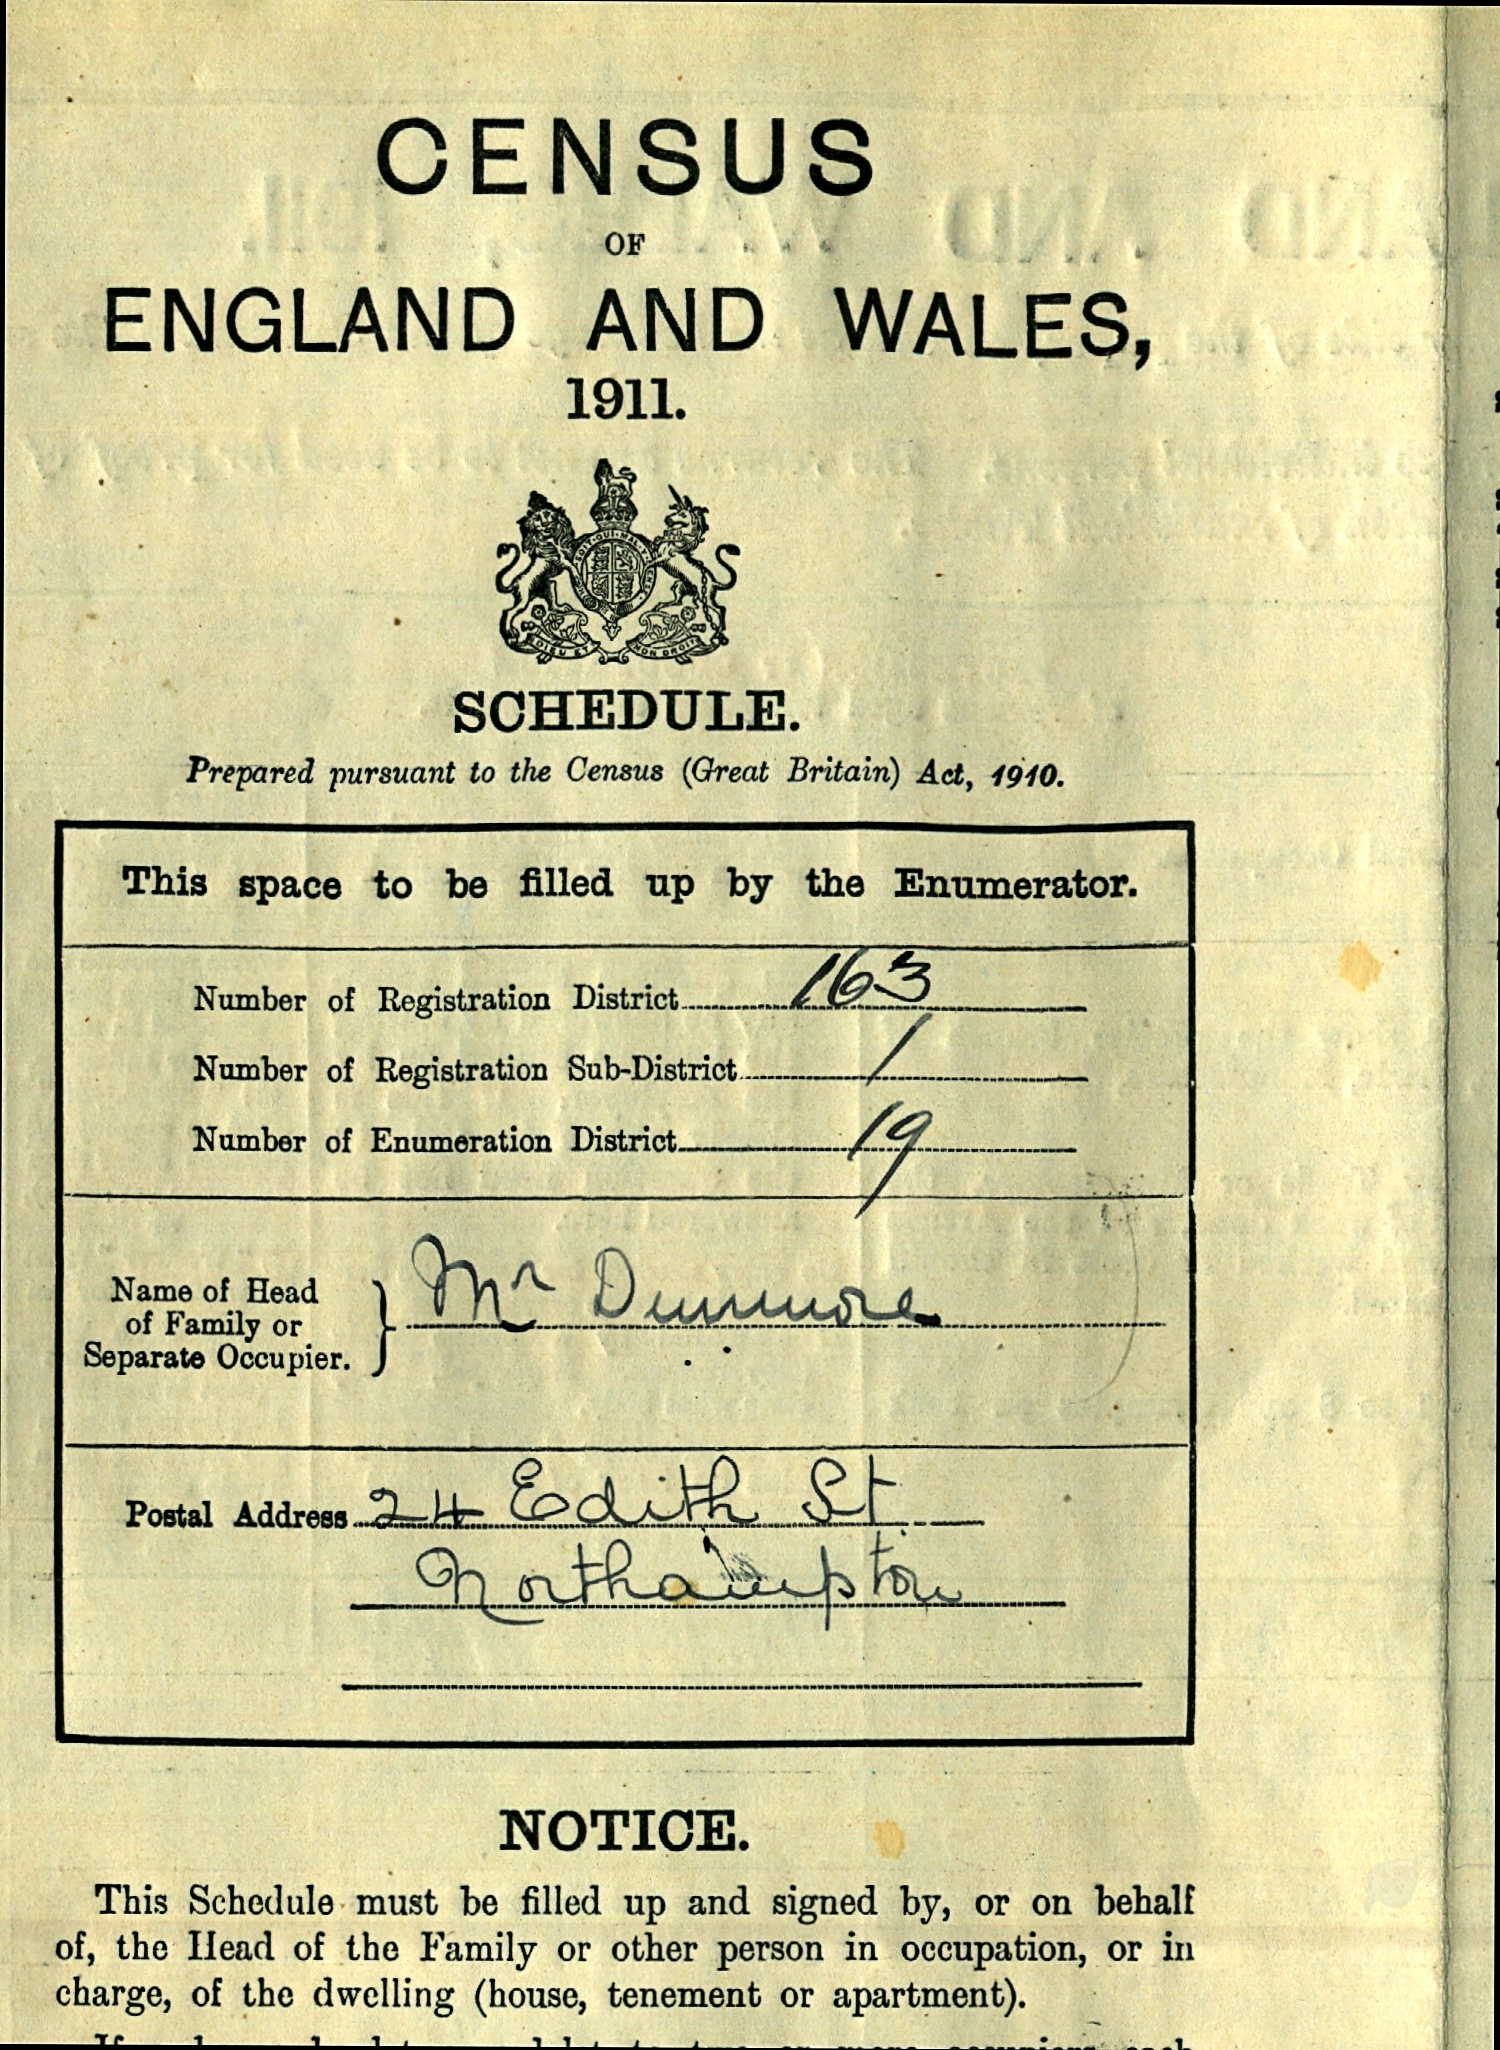 CENSUS
OF
ENGLAND AND WALES,
1911.
SOIT QUI MAL Y
DIEU ET NON DROIT
SCHEDULE.
Prepared pursuant to the Census (Great Britain) Act, 1910.
This space to be filled up by the Enumerator.
Number of Registration District 163
Number of Registration Sub-District 1
Number of Enumeration District 19
Name of Head
of Family or
Separate Occupier. } Mr Dunmore
Postal Address 24 Edith St
Northampton
NOTICE.
This Schedule must be filled up and signed by, or on behalf
of, the Head of the Family or other person in occupation, or in
charge, of the dwelling (house, tenement or apartment).